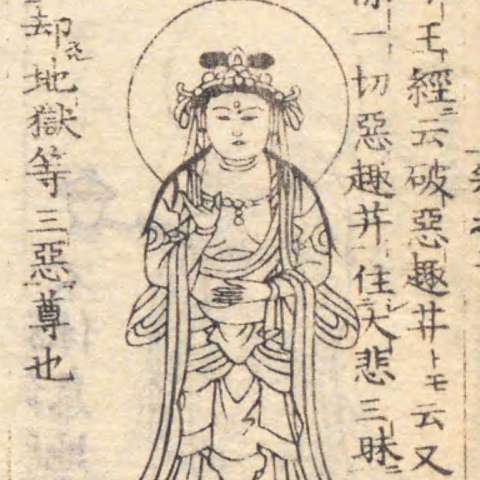 王經ニ云破惡趣井トモ云又
一切惡趣井住大悲三昧ニ
却地獄等三惡尊也